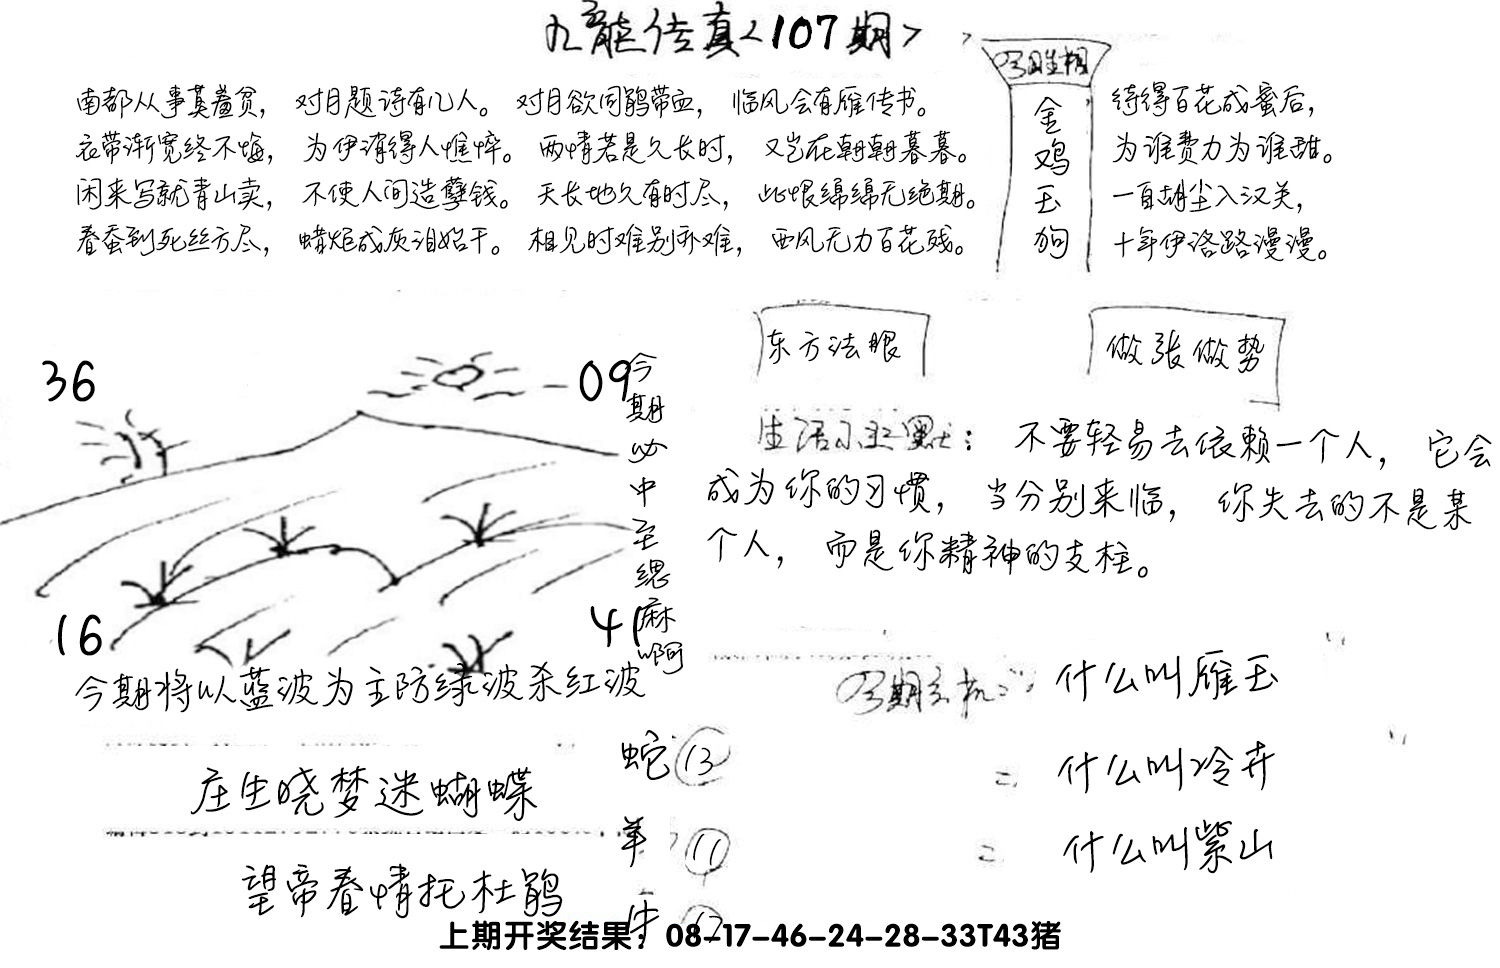 九龍传真<107期>
南都从事莫羞贫，对月题诗有几人。对月欲同鹃带血，临风会有雁传书。
衣带渐宽终不悔，为伊消得人憔悴。两情若是久长时，又岂在朝朝暮暮。
闲来写就青山卖，不使人间造孽钱。天长地久有时尽，此恨绵绵无绝期。
春蚕到死丝方尽，蜡炬成灰泪始干。相见时难别亦难，西风无力百花残。
金鸡玉狗
待得百花成蜜后，
为谁费力为谁甜。
一自胡尘入汉关，
十年伊洛路漫漫。
36
09
16
41
东方法眼
做张做势
生活小幽默：不要轻易去依赖一个人，它会
成为你的习惯，当分别来临，你失去的不是某
个人，而是你精神的支柱。
今期将以蓝波为主防绿波杀红波
庄生晓梦迷蝴蝶
望帝春情托杜鹃
蛇 13
羊 11
牛
今期玄机：什么叫雁玉
什么叫冷卉
什么叫紫山
上期开奖结果：08-17-46-24-28-33T43猪